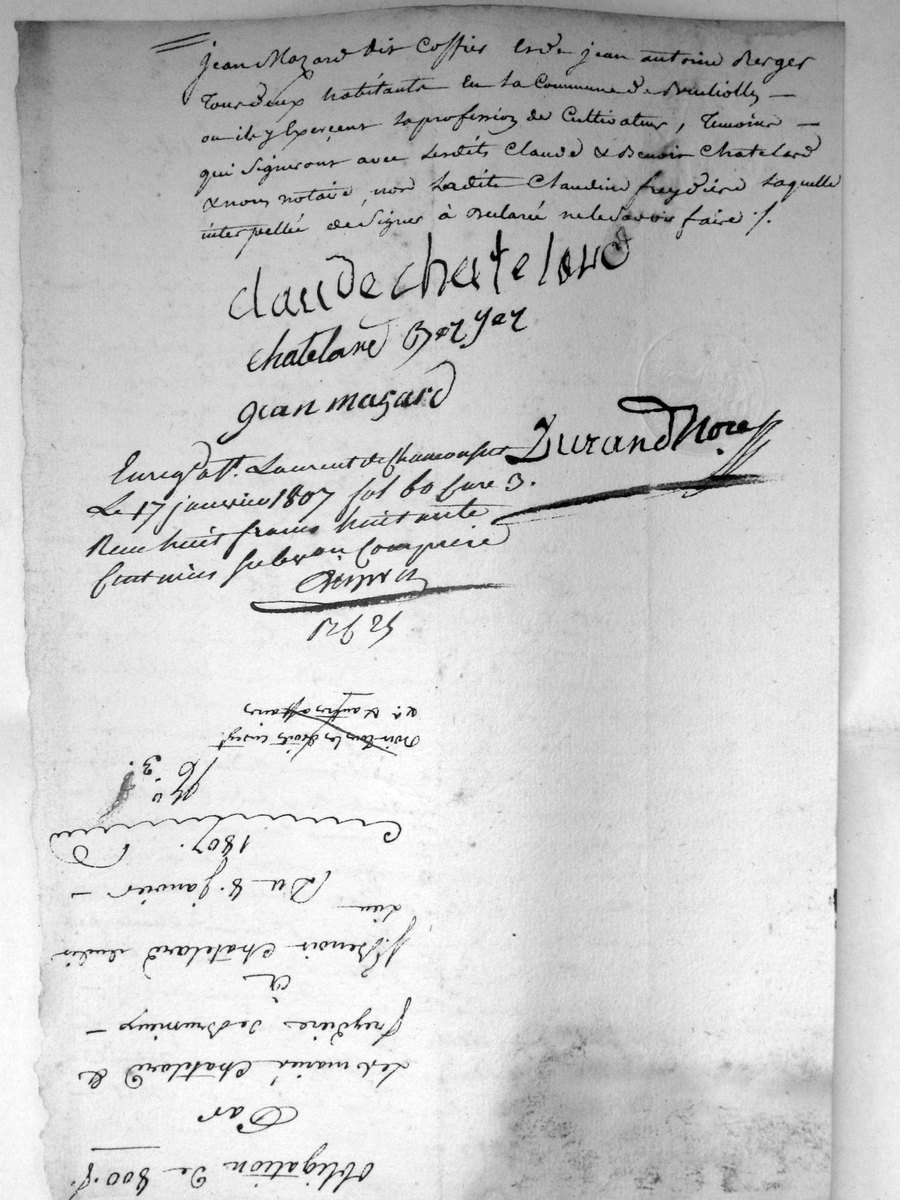 jean Mazard dit Coffier & de jean antoine Berger
Tous deux habitants en la Commune de Brulliolles —
ou ils y Exerçent la profession de Cultivateur, Temoins —
qui Signeront avec lesdits Claude & Benoit Chatelard
& nous notaire, non ladite Claudine freydière laquelle
interpellée de Signer à Déclaré ne le Savoir faire /.
claude chatelard
chatelard Berger
jean mazard
Durand Nore
Enregt. à St. Laurent de Chamousset
Le 17 janvier 1807 fol 60 Case 3.
Recu huit francs huitante
Centimes Subvon Comprise
12f 25
droits
& autres affaires
No. 3.
1807.
Du 8. janvier —
Sr. Benoit Chatelard
à
freydière de Brussieux —
Les mariés Chatelard &
Par
Obligation de 800. f.